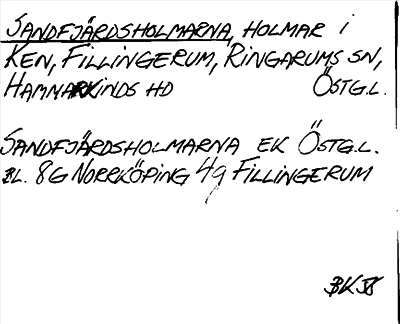 SANDFJÄRDSHOLMARNA, HOLMAR I
KEN, FILLINGERUM, RINGARUMS SN,
HAMMARKINDS HD ÖSTG.L.
SANDFJÄRDSHOLMARNA EK ÖSTG.L.
BL. 8G NORRKÖPING 4g FILLINGERUM